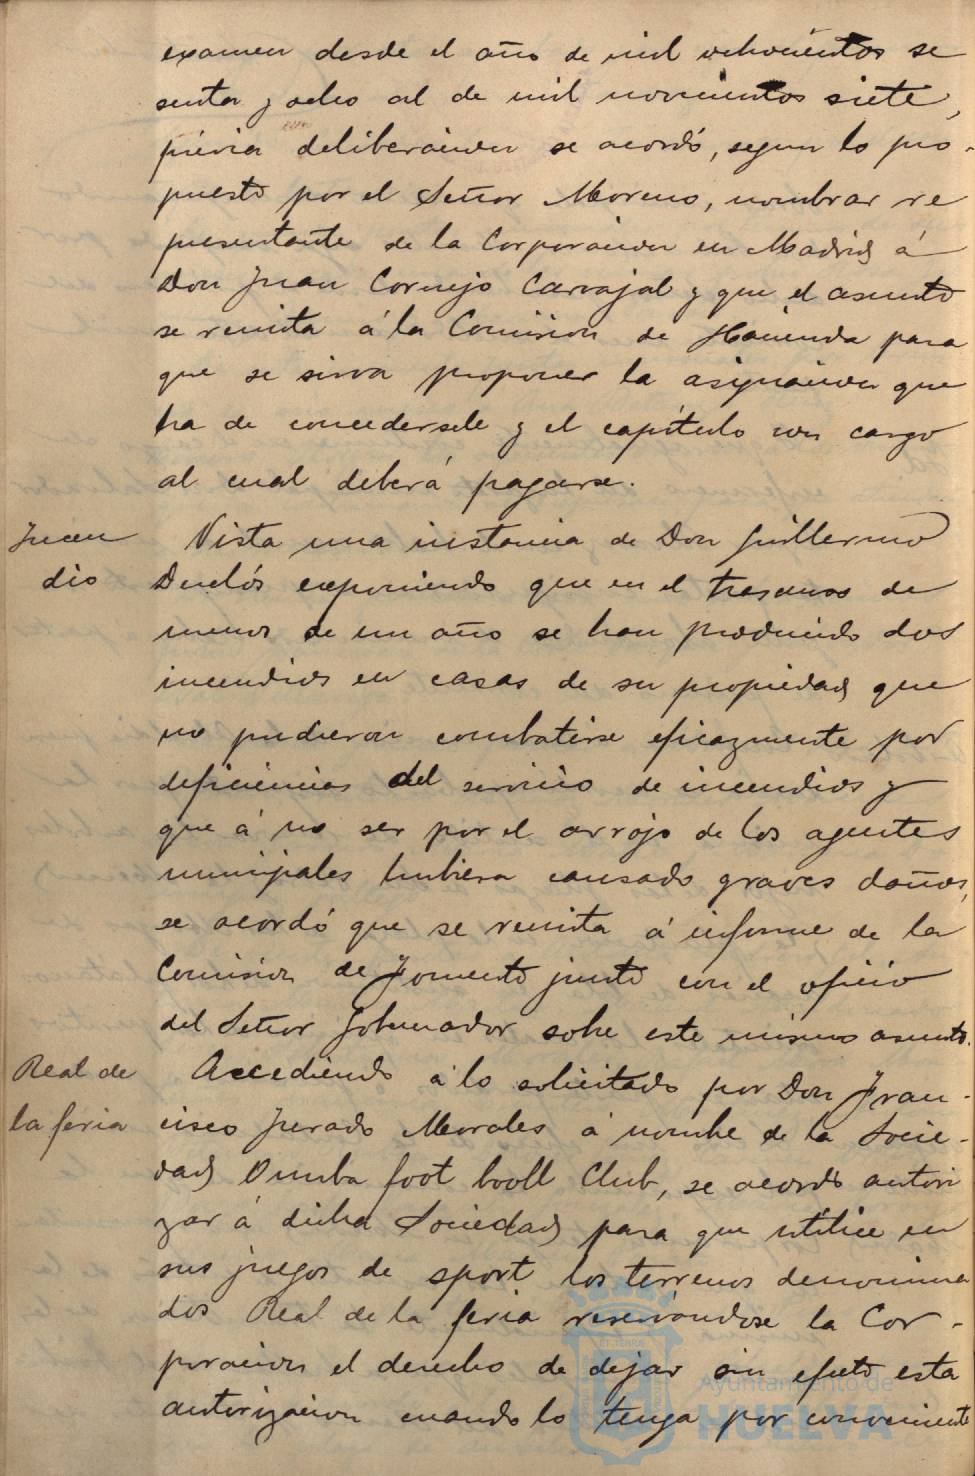 examen desde el año de mil ochocientos se
senta y ocho al de mil novecientos siete,
prévia deliberación se acordó, segun lo pro-
puesto por el Señor Moreno, nombrar re
presentante de la Corporación en Madrid á
Don Juan Cornejo Carvajal y que el asunto
se remita á la Comisión de Hacienda para
que se sirva proponer la asignación que
ha de concedersele y el capítulo con cargo
al cual deberá pagarse.
Incen
dio
Vista una instancia de Don Guillermo
Duclós exponiendo que en el trascurso de
menos de un año se han producido dos
incendios en casas de su propiedad que
no pudieron combatirse eficazmente por
deficiencias del servicio de incendios y
que á no ser por el arrojo de los agentes
municipales hubiera causado graves daños,
se acordó que se remita á informe de la
Comisión de Fomento junto con el oficio
del Señor Gobernador sobre este mismo asunto.
Real de
la feria
Accediendo á lo solicitado por Don Fran-
cisco Jurado Morales á nombre de la Socie-
dad Onuba foot booll Club, se acordó autori
zar á dicha Sociedad para que utilice en
sus juegos de sport los terrenos denomina
dos Real de la feria reservándose la Cor-
poración el derecho de dejar sin efecto esta
autorización cuando lo tenga por conveniente
Ayuntamiento de
HUELVA